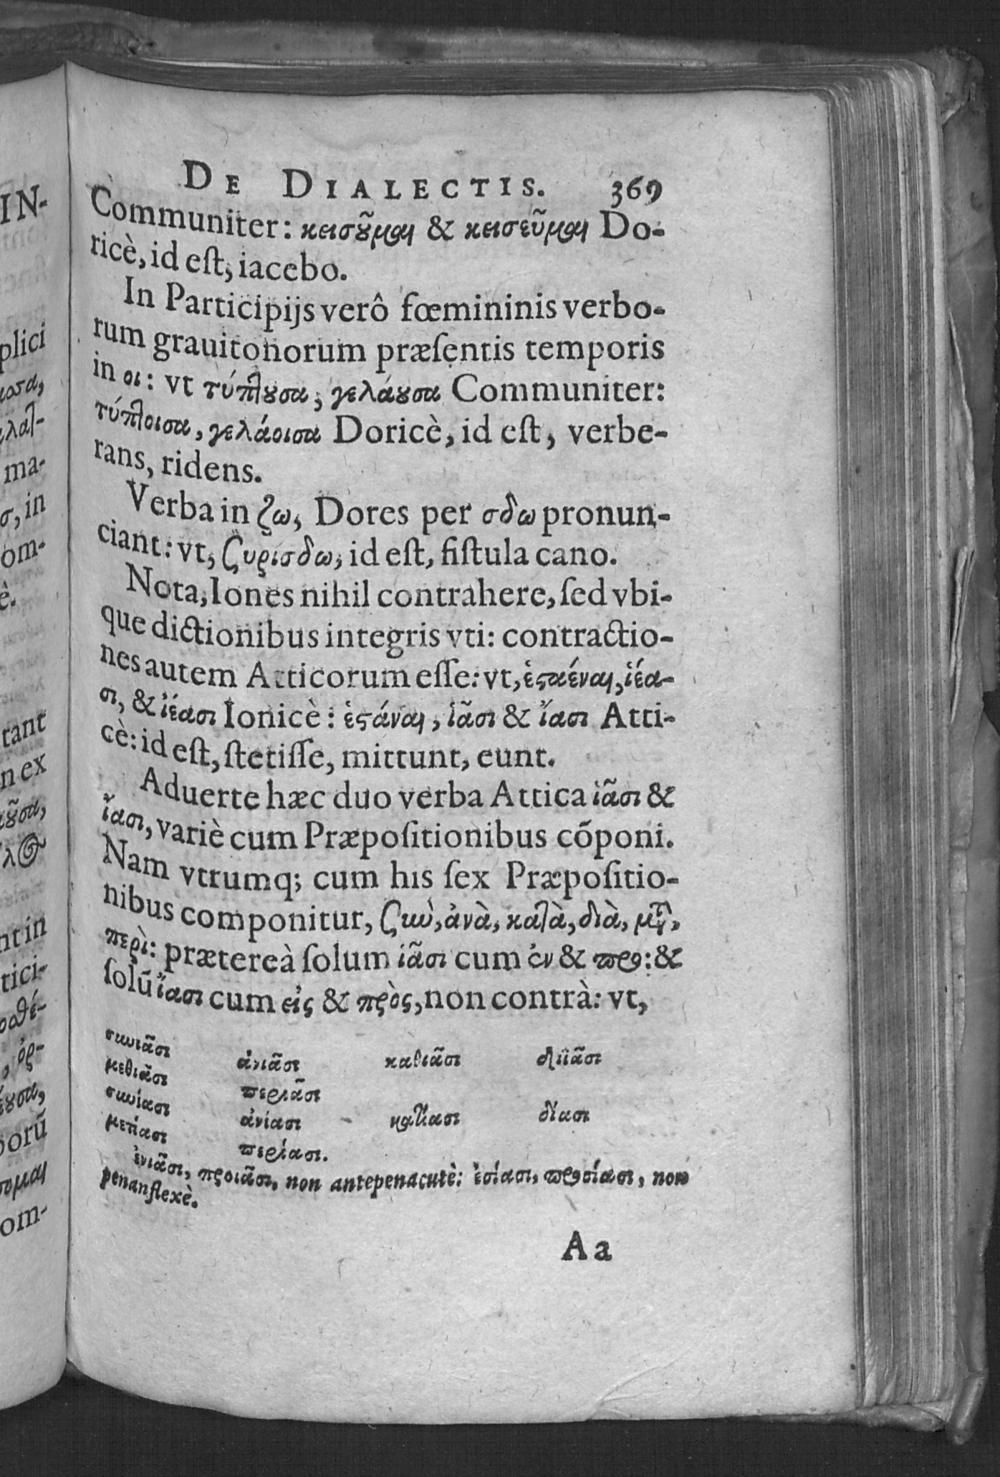 DE DIALECTIS. 369
Communiter: κεισοῦμαι & κεισεῦμαι Do-
ricè, id est, iacebo.
In Participijs verô fœmininis verbo-
rum grauitonorum præsentis temporis
in οι: vt τύπτουσα, γελάουσα Communiter:
τύπτοισα, γελάοισα Doricè, id est, verbe-
rans, ridens.
Verba in ζω, Dores per σδω pronun-
ciant: vt, συρίσδω, id est, fistula cano.
Nota, Iones nihil contrahere, sed vbi-
que dictionibus integris vti: contractio-
nes autem Atticorum esse: vt, ἑσταέναι, ἱέα-
σι, & ἰέασι Ionicè: ἑστάναι, ἱᾶσι & ἴασι Atti-
cè: id est, stetisse, mittunt, eunt.
Aduerte hæc duo verba Attica ἱᾶσι &
ἴασι, variè cum Præpositionibus cõponi.
Nam vtrumq; cum his sex Præpositio-
nibus componitur, σὺν, ἀνὰ, κατὰ, διὰ, μετὰ,
περὶ: prætereà solum ἱᾶσι cum ἐν & προ: &
solũ ἴασι cum εἰς & πρὸς, non contrà: vt,
συνιᾶσι ἀνιᾶσι καθιᾶσι διϊᾶσι
μεθιᾶσι περιᾶσι
συνίασι ἀνίασι κατίασι δίασι
μετίασι περίασι.
ἐνιᾶσι, προιᾶσι, non antepenacutè: ἐσίασι, προσίασι, non
penanflexè.
Aa
IN-
plici
ma-
σ, in
om-
è.
tant
n ex
nt in
tici-
orũ
om-